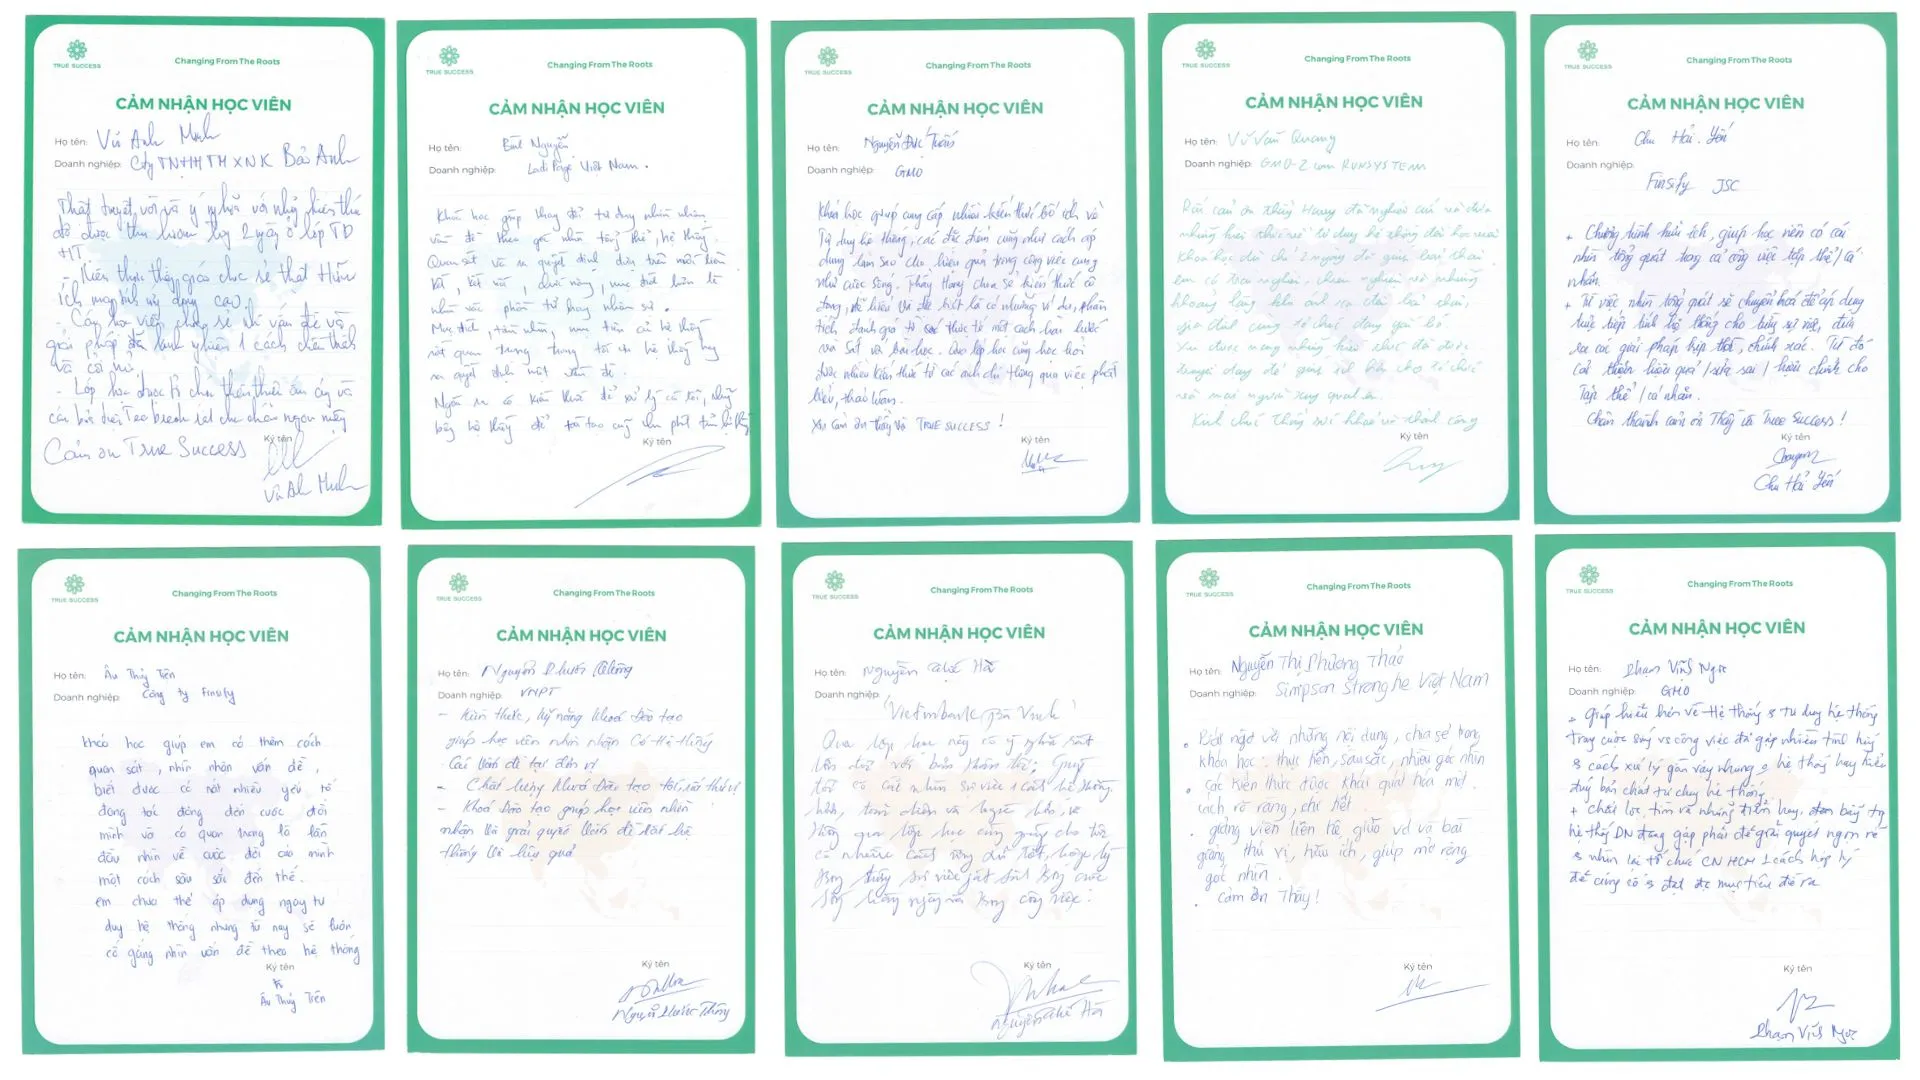 TRUE SUCCESS
Changing From The Roots
CẢM NHẬN HỌC VIÊN
Họ tên: Vũ Anh Minh
Doanh nghiệp: Cty TNHH TM XNK Bảo Anh
Thật tuyệt vời và ý nghĩa với những kiến thức
đã được thu lượm trong 2 ngày ở lớp TD
HT
- Kiến thức thầy giáo chia sẻ thật Hữu
ích mang tính ứng dụng cao.
Các học viên chia sẻ vấn đề và
giải pháp 1 cách chân thành
và cởi mở.
- Lớp học được thân thiện ấm áp và
Cảm ơn True Success
Ký tên
Vũ Anh Minh
TRUE SUCCESS
Changing From The Roots
CẢM NHẬN HỌC VIÊN
Họ tên: Nguyễn
Doanh nghiệp: Ladi Page Việt Nam.
Khóa học giúp thay đổi tư duy nhìn nhận
vấn đề theo góc nhìn tổng thể, hệ thống.
Quan sát và ra quyết định dựa trên mối liên
kết, kết nối, chức năng, mục đích luôn là
nhân sự.
Mục đích, tầm nhìn, mục tiêu của hệ thống
rất quan trọng trong tối ưu hệ thống hay
ra quyết định một vấn đề.
Ngoài ra có kiến thức để xử lý cá tôi, những
bẫy hệ thống để
Ký tên
TRUE SUCCESS
Changing From The Roots
CẢM NHẬN HỌC VIÊN
Họ tên: Nguyễn Đức Tuấn
Doanh nghiệp: GMO
Khoá học giúp cung cấp nhiều kiến thức bổ ích về
Tư duy hệ thống, các đặc điểm cũng như cách áp
dụng làm sao cho hiệu quả trong công việc cũng
như cuộc sống. Thầy Hưng chia sẻ kiến thức cô
đọng, dễ hiểu và đặc biệt là có những ví dụ, phân
tích đánh giá từ thực tế một cách hài hước
và sát với bài học. Qua lớp học cũng học hỏi
được nhiều kiến thức từ các anh chị thông qua việc phát
biểu, thảo luận.
Xin cảm ơn thầy và TRUE SUCCESS !
Ký tên
TRUE SUCCESS
Changing From The Roots
CẢM NHẬN HỌC VIÊN
Họ tên: Vũ Văn Quang
Doanh nghiệp: GMO-Z.com RUNSYSTEM
Rất cảm ơn thầy Hưng đã nghiên cứu và đưa
những kiến thức về tư duy hệ thống đến học viên
Khoá học dù chỉ 2 ngày đã giúp
em có trải nghiệm, chiêm nghiệm và những
khoảng lặng bản thân,
gia đình cũng tổ chức đang gắn bó.
Xin được mang những kiến thức đã được
truyền dạy để giúp ích hơn cho tổ chức
và mọi người xung quanh.
Kính chúc Thầy sức khoẻ và thành công
Ký tên
TRUE SUCCESS
Changing From The Roots
CẢM NHẬN HỌC VIÊN
Họ tên: Chu Hải Yến
Doanh nghiệp:
Finsify JSC
+ Chương trình hữu ích, giúp học viên có cái
nhìn tổng quát trong cả công việc tập thể / cá
nhân.
+ Từ việc nhìn tổng quát sẽ chuyển hoá để áp dụng
trực tiếp tính hệ thống cho từng sự việc, đưa
ra các giải pháp kịp thời, chính xác. Từ đó
cải thiện hiệu quả / sửa sai / hiệu chỉnh cho
Tập thể / cá nhân.
Chân thành cảm ơn Thầy và True Success !
Ký tên
Chu Hải Yến
TRUE SUCCESS
Changing From The Roots
CẢM NHẬN HỌC VIÊN
Họ tên: Âu Thủy Tiên
Doanh nghiệp: Công ty Finsify
Khoá học giúp em có thêm cách
quan sát, nhìn nhận vấn đề,
biết được có rất nhiều yếu tố
đang tác động đến cuộc đời
mình và có quan trọng là lần
đầu nhìn về cuộc đời của mình
một cách sâu sắc đến thế.
em chưa thể áp dụng ngay tư
duy hệ thống nhưng từ nay sẽ luôn
cố gắng nhìn vấn đề theo hệ thống
Ký tên
Âu Thủy Tiên
TRUE SUCCESS
Changing From The Roots
CẢM NHẬN HỌC VIÊN
Họ tên: Nguyễn Phước Thông
Doanh nghiệp: VNPT
- Kiến thức, kỹ năng khoá Đào tạo
giúp học viên nhìn nhận Có Hệ thống
Các vấn đề tại đơn vị
- Chất lượng khoá Đào tạo tốt, rất thú vị
- Khoá Đào tạo giúp học viên nhìn
nhận và giải quyết vấn đề có hệ
thống và hiệu quả
Ký tên
Nguyễn Phước Thông
TRUE SUCCESS
Changing From The Roots
CẢM NHẬN HỌC VIÊN
Họ tên: Nguyễn Hà
Doanh nghiệp:
Vietinbank Bà
Qua lớp học này có ý nghĩa rất
lớn đối với bản thân tôi; Giúp
tôi có cái nhìn sự việc 1 cách hệ thống
hơn, toàn diện và
thông qua lớp học cũng giúp cho tôi
có nhiều cách ứng xử tốt, hợp lý
trong từng sự việc phát sinh trong cuộc
sống hàng ngày và trong công việc.
Ký tên
Nguyễn Hà
TRUE SUCCESS
Changing From The Roots
CẢM NHẬN HỌC VIÊN
Họ tên: Nguyễn Thị Phương Thảo
Doanh nghiệp: Simpson Strong tie Việt Nam
. Bất ngờ với những nội dung, chia sẻ trong
khóa học: thực tiễn, sâu sắc, nhiều góc nhìn
. Các kiến thức được khái quát hóa một
cách rõ ràng, chi tiết.
. giảng viên liên hệ, giữa vd và bài
giảng thú vị, hữu ích, giúp mở rộng
góc nhìn.
. Cảm ơn Thầy!
Ký tên
TRUE SUCCESS
Changing From The Roots
CẢM NHẬN HỌC VIÊN
Họ tên: Phạm Vĩnh Ngọc
Doanh nghiệp: GMO
+ Giúp hiểu hơn về Hệ thống & tư duy hệ thống
trong cuộc sống vs công việc đã gặp nhiều tình huống
& cách xử lý gần vậy nhưng hệ thống hay hiểu
đúng bản chất tư duy hệ thống
+ chắt lọc, tìm ra những điểm hay, đòn bẩy trong
hệ thống DN đang gặp phải để giải quyết ngọn rễ
& nhìn lại tổ chức CN HCM 1 cách hợp lý
để củng cố & đạt đc mục tiêu đề ra
Ký tên
Phạm Vĩnh Ngọc